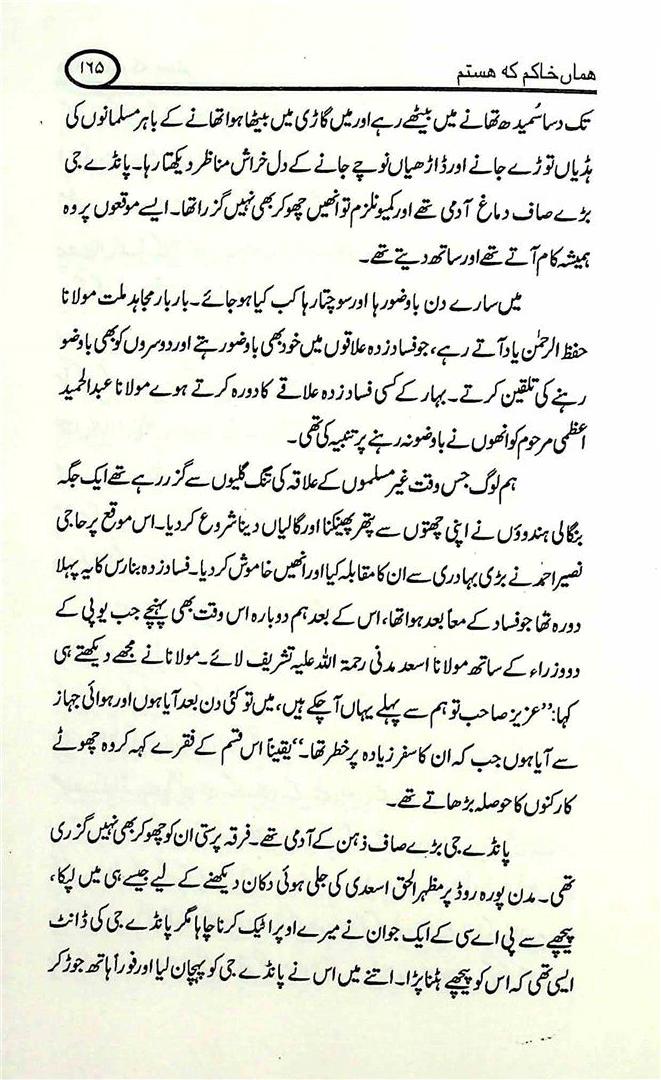 ۱۶۵
هماں خاکم که هستم
تک دساسُمیدھ تھانے میں بیٹھے رہے اور میں گاڑی میں بیٹھا ہوا تھانے کے باہر مسلمانوں کی
ہڈیاں توڑے جانے اور ڈاڑھیاں نوچے جانے کے دل خراش مناظر دیکھتا رہا۔ پانڈے جی
بڑے صاف دماغ آدمی تھے اور کمیونلزم تو انھیں چھو کر بھی نہیں گزرا تھا۔ ایسے موقعوں پر وہ
ہمیشہ کام آتے تھے اور ساتھ دیتے تھے۔
میں سارے دن باوضو رہا اور سوچتا رہا کب کیا ہو جائے۔ بار بار مجاہد ملت مولانا
حفظ الرحمٰن یاد آتے رہے، جو فساد زدہ علاقوں میں خود بھی باوضو رہتے اور دوسروں کو بھی باوضو
رہنے کی تلقین کرتے۔ بہار کے کسی فساد زدہ علاقے کا دورہ کرتے ہوے مولانا عبدالحمید
اعظمی مرحوم کو انھوں نے باوضو نہ رہنے پر تنبیہ کی تھی۔
ہم لوگ جس وقت غیر مسلموں کے علاقہ کی تنگ گلیوں سے گزر رہے تھے ایک جگہ
بنگالی ہندوؤں نے اپنی چھتوں سے پتھر پھینکنا اور گالیاں دینا شروع کر دیا۔ اس موقع پر حاجی
نصیر احمد نے بڑی بہادری سے ان کا مقابلہ کیا اور انھیں خاموش کر دیا۔ فساد زدہ بنارس کا یہ پہلا
دورہ تھا جو فساد کے معاً بعد ہوا تھا، اس کے بعد ہم دوبارہ اس وقت بھی پہنچے جب یوپی کے
دو وزراء کے ساتھ مولانا اسعد مدنی رحمۃ اللہ علیہ تشریف لائے۔ مولانا نے مجھے دیکھتے ہی
کہا: ”عزیز صاحب تو ہم سے پہلے یہاں آ چکے ہیں، میں تو کئی دن بعد آیا ہوں اور ہوائی جہاز
سے آیا ہوں جب کہ ان کا سفر زیادہ پر خطر تھا۔“ یقیناً اس قسم کے فقرے کہہ کر وہ چھوٹے
کارکنوں کا حوصلہ بڑھاتے تھے۔
پانڈے جی بڑے صاف ذہن کے آدمی تھے۔ فرقہ پرستی ان کو چھو کر بھی نہیں گزری
تھی۔ مدن پورہ روڈ پر مظہر الحق اسعدی کی جلی ہوئی دکان دیکھنے کے لیے جیسے ہی میں لپکا،
پیچھے سے پی اے سی کے ایک جوان نے میرے اوپر اٹیک کرنا چاہا مگر پانڈے جی کی ڈانٹ
ایسی تھی کہ اس کو پیچھے ہٹنا پڑا۔ اتنے میں اس نے پانڈے جی کو پہچان لیا اور فوراً ہاتھ جوڑ کر